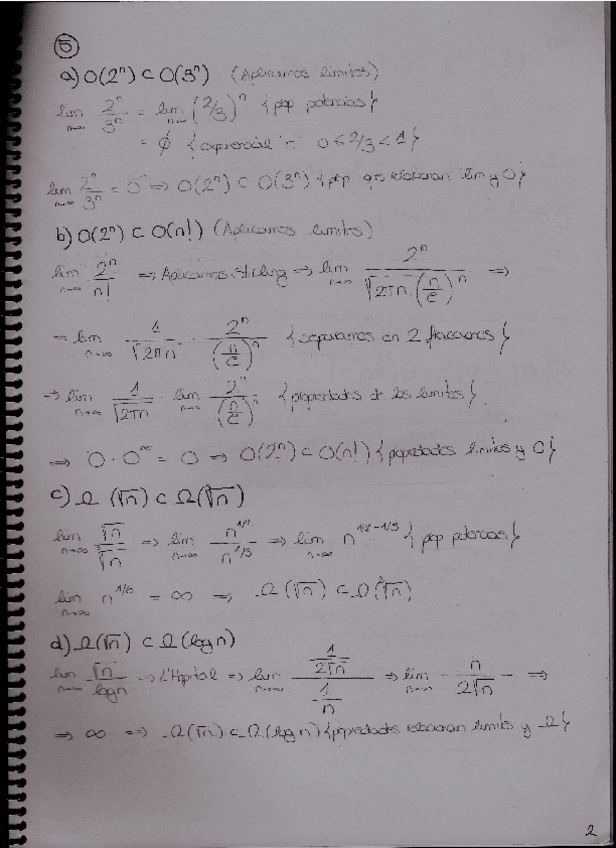 ⑤
a) O(2ⁿ) ⊂ O(3ⁿ) (Aplicamos límites)
lim n→∞ 2ⁿ/3ⁿ = lim n→∞ (2/3)ⁿ {prop potencias}
= 0 {exponencial n 0 ≤ 2/3 < 1}
lim n→∞ 2ⁿ/3ⁿ = 0 ⇒ O(2ⁿ) ⊂ O(3ⁿ) {prop que relacionan lim y O}
b) O(2ⁿ) ⊂ O(n!) (Aplicamos límites)
lim n→∞ 2ⁿ/n! ⇒ Aplicamos Stirling ⇒ lim n→∞ 2ⁿ/(√2πn · (n/e)ⁿ) ⇒
⇒ lim n→∞ 1/√2πn · 2ⁿ/(n/e)ⁿ {separamos en 2 fracciones}
⇒ lim n→∞ 1/√2πn · lim n→∞ 2ⁿ/(n/e)ⁿ {propiedades de los límites}
⇒ 0 · 0^∞ = 0 ⇒ O(2ⁿ) ⊂ O(n!) {propiedades límites y O}
c) Ω(√n) ⊂ Ω(∛n)
lim n→∞ √n/∛n ⇒ lim n→∞ n^1/2/n^1/3 ⇒ lim n→∞ n^1/2-1/3 {prop potencias}
lim n→∞ n^1/6 = ∞ ⇒ Ω(√n) ⊂ Ω(∛n)
d) Ω(√n) ⊂ Ω(log n)
lim n→∞ √n/log n ⇒ L'Hopital ⇒ lim n→∞ (1/2√n)/(1/n) ⇒ lim n→∞ n/2√n ⇒
⇒ ∞ ⇒ Ω(√n) ⊂ Ω(log n) {propiedades relacionan límites y Ω}
2